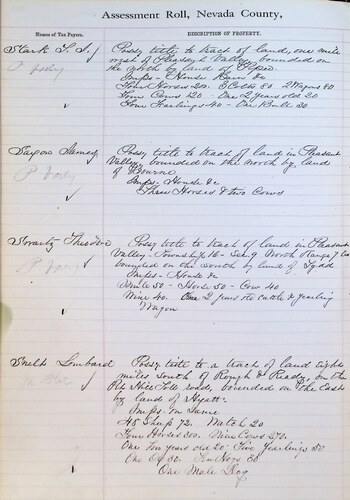 Assessment Roll, Nevada County,
Names of Tax Payers.
DESCRIPTION OF PROPERTY.
Stark T. S. Possy title to tract of land, one mile
west of Pleasant Valley bounded on
the North by land of
Imps - House Barn &c
Four Horses 200. 2 Colts 80 2 Wagons 80
Four Cows 120 - One 2 years old 20
Four Yearlings 40 - One Bull 30
Possy title to tract of land in Pleasant
Valley, bounded on the North by land
of
Imps. House &c
Three Horses & two Cows
Swartz Theodore Possy title to tract of land in Pleasant
Valley - Township 16 - Sec. 9 North Range 7 East
bounded on the South by land of Todd
Imps - House &c
Mule 50 - Horse 50 - Cow 40
40 2 years old cattle & yearling
Wagon
Lombard Possy title to a tract of land eight
miles South of Rough & Ready on the
Hill Toll road, bounded on the East
by land of Hyatt.
Imps. on Same
48 Sheep 72. Watch 20
Four Horses 200. Nine Cows 270.
One two years old 20 - Five Yearlings 50
One 30. Ten Hogs 30
One Male Dog